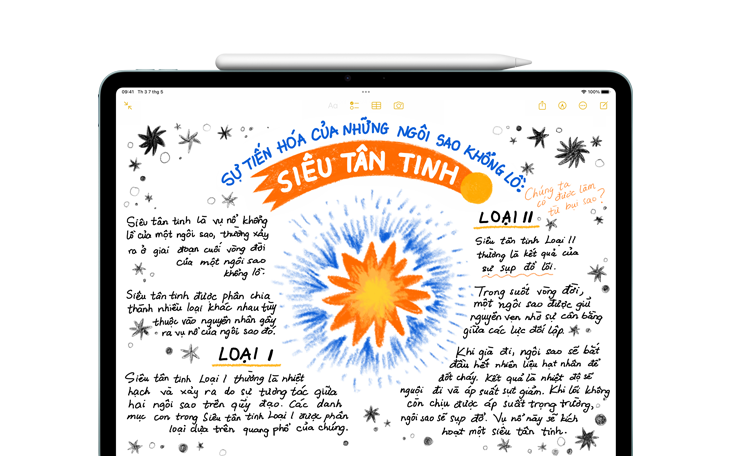 09:41 Th 3 7 thg 5
100%
Aa
SỰ TIẾN HÓA CỦA NHỮNG NGÔI SAO KHỔNG LỒ:
SIÊU TÂN TINH
Chúng ta
có được làm
từ bụi sao?
Siêu tân tinh là vụ nổ khổng
lồ của một ngôi sao, thường xảy
ra ở giai đoạn cuối vòng đời
của một ngôi sao
khổng lồ.
Siêu tân tinh được phân chia
thành nhiều loại khác nhau tùy
thuộc vào nguyên nhân gây
ra vụ nổ của ngôi sao đó.
LOẠI I
Siêu tân tinh Loại I thường là nhiệt
hạch và xảy ra do sự tương tác giữa
hai ngôi sao trên quỹ đạo. Các danh
mục con trong Siêu tân tinh Loại I được phân
loại dựa trên quang phổ của chúng.
LOẠI II
Siêu tân tinh Loại II
thường là kết quả của
sự sụp đổ lõi.
Trong suốt vòng đời,
một ngôi sao được giữ
nguyên vẹn nhờ sự cân bằng
giữa các lực đối lập.
Khi già đi, ngôi sao sẽ bắt
đầu hết nhiên liệu hạt nhân để
đốt cháy. Kết quả là nhiệt độ sẽ
nguội đi và áp suất sụt giảm. Khi lõi không
còn chịu được áp suất trọng trường,
ngôi sao sẽ sụp đổ. Vụ nổ này sẽ kích
hoạt một siêu tân tinh.